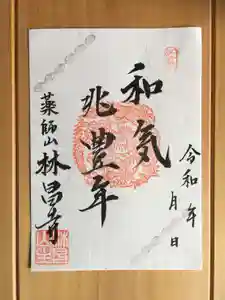 令和 年 月 日
和気
兆豊年
薬師山 林昌寺